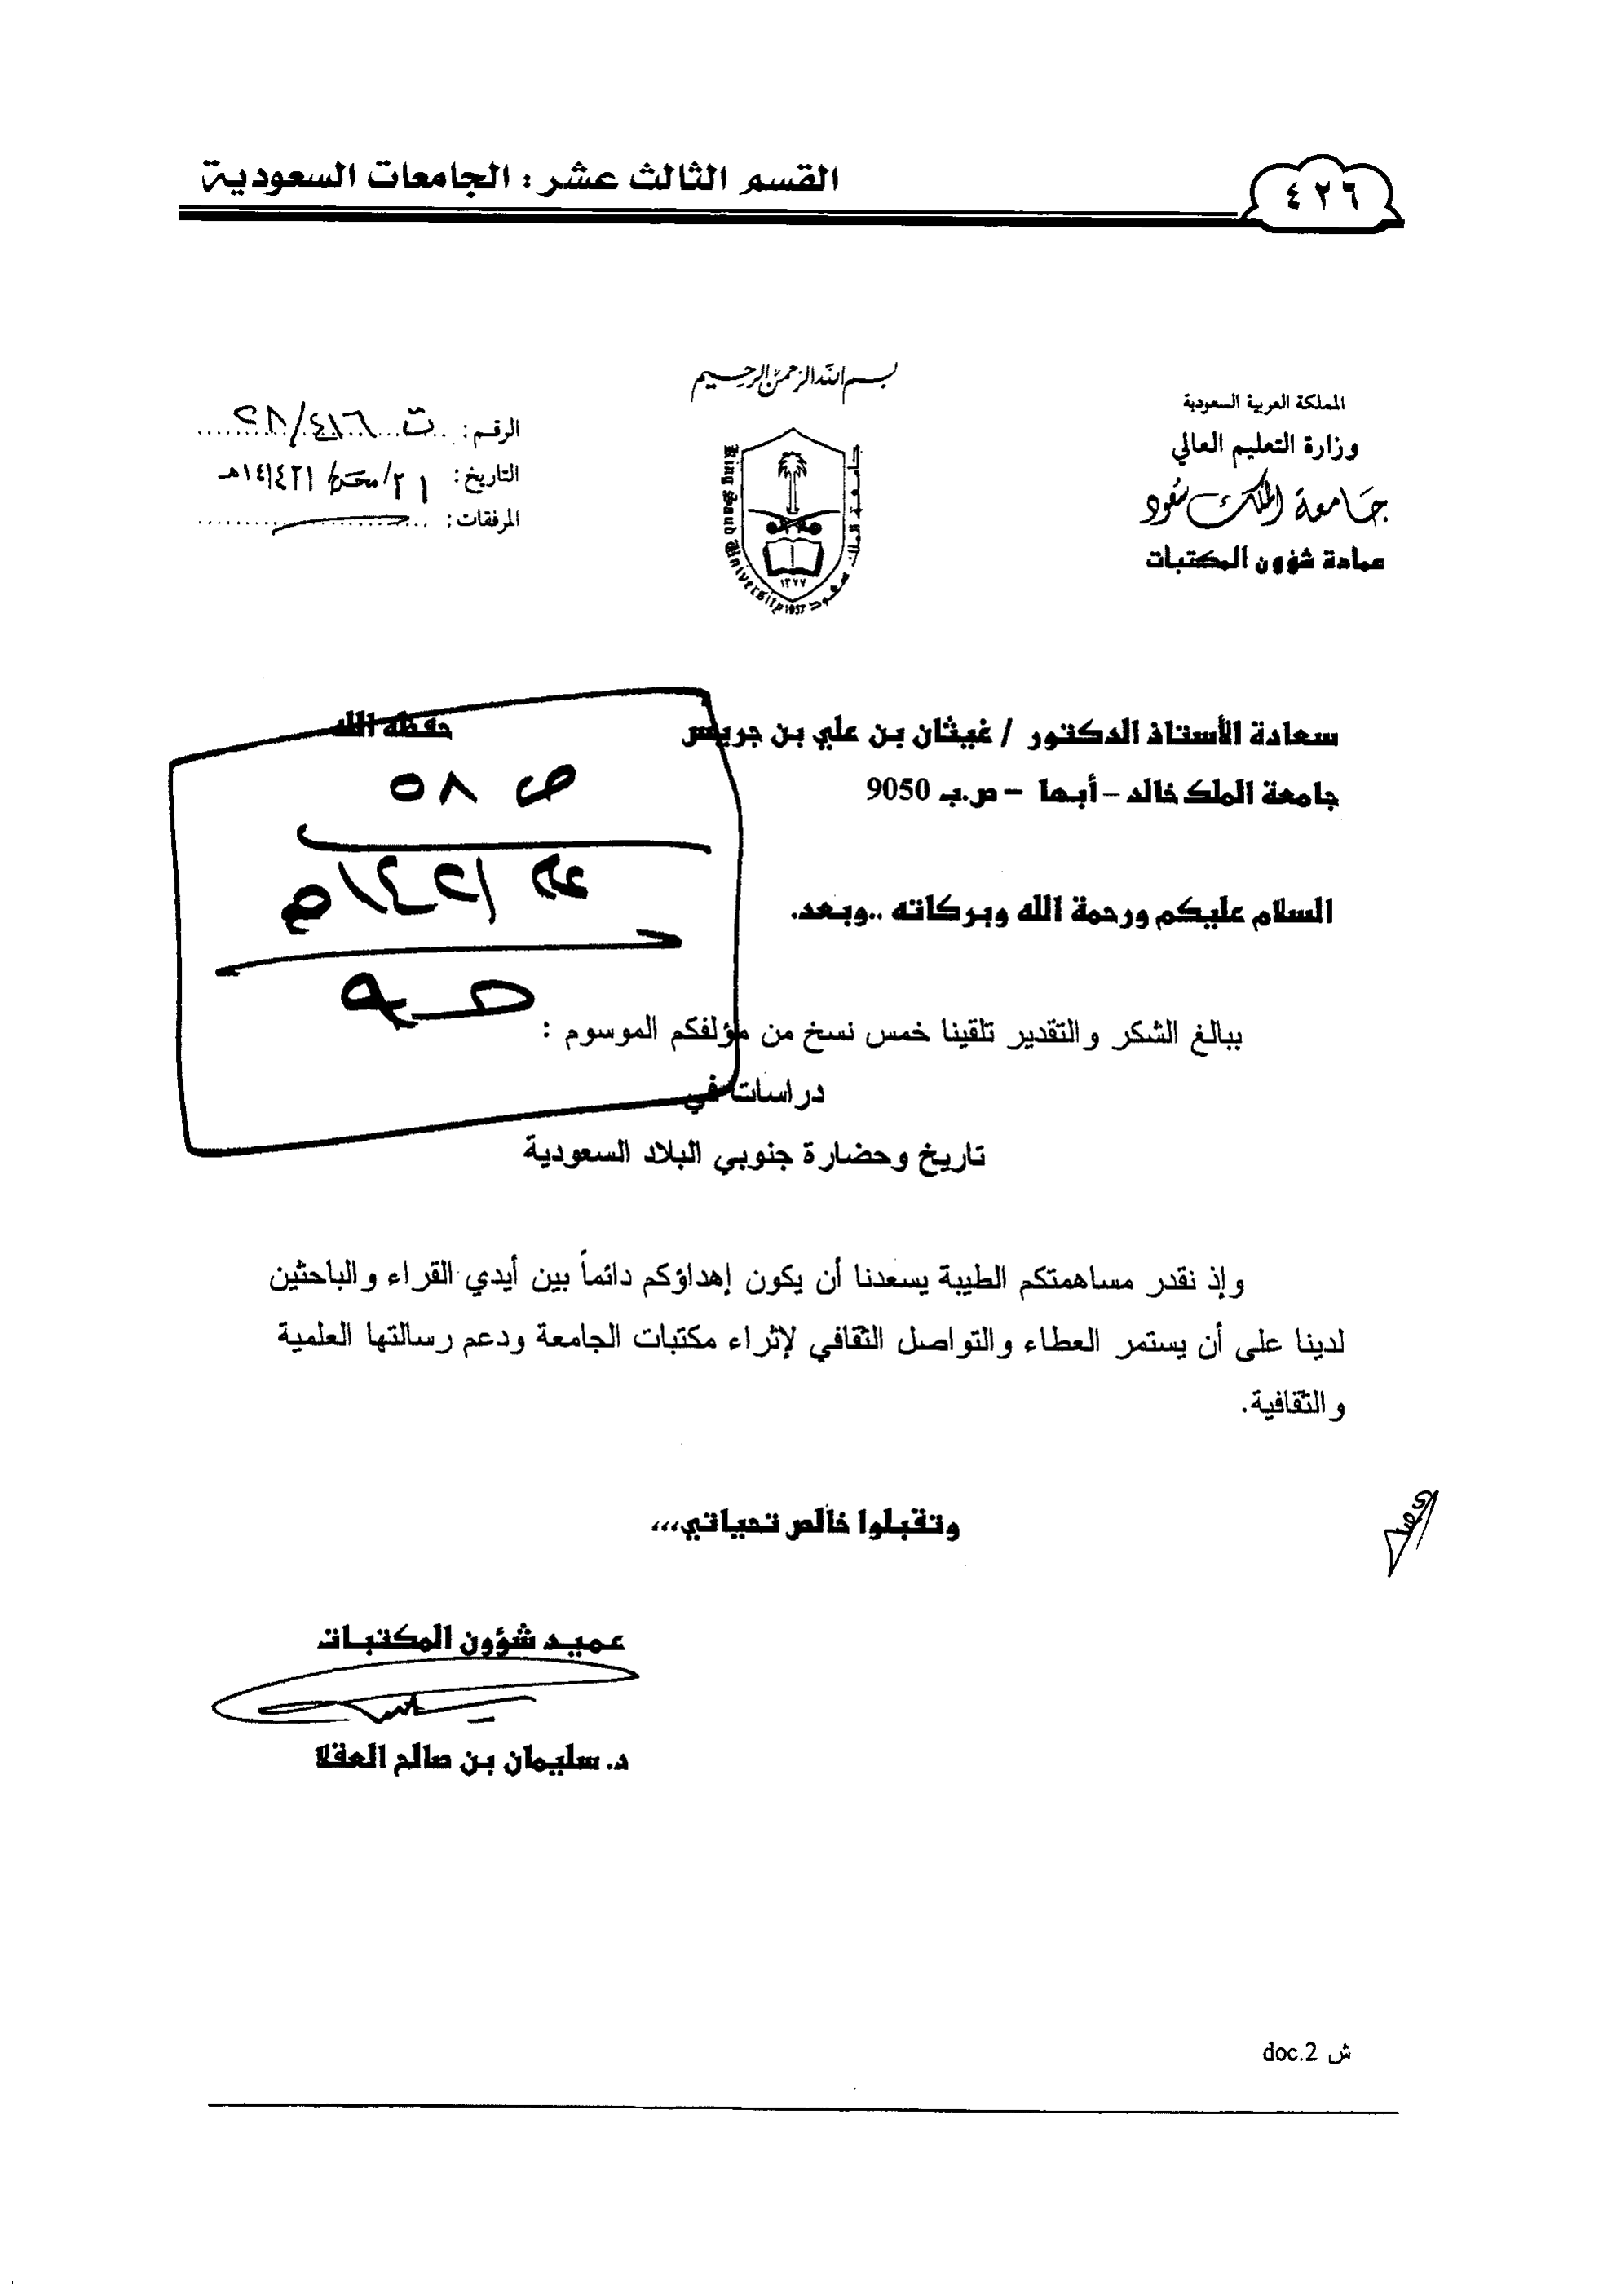 القسم الثالث عشر : الجامعات السعودية
٤٢٦
بسم الله الرحمن الرحيم
المملكة العربية السعودية
وزارة التعليم العالي
جامعة الملك سعود
عمادة شؤون المكتبات
جامعة الملك سعود
King Saud University 1957
١٣٧٧
الرقم :
التاريخ : ٢١/محرم/١٤٢١هـ
المرفقات :
سعادة الأستاذ الدكتور / غيثان بن علي بن جريس حفظه الله
جامعة الملك خالد – أبها – ص.ب 9050
ص ٥٨
السلام عليكم ورحمة الله وبركاته ..وبعد.
ببالغ الشكر والتقدير تلقينا خمس نسخ من مؤلفكم الموسوم :
دراسات في
تاريخ وحضارة جنوبي البلاد السعودية
وإذ نقدر مساهمتكم الطيبة يسعدنا أن يكون إهداؤكم دائماً بين أيدي القراء والباحثين
لدينا على أن يستمر العطاء والتواصل الثقافي لإثراء مكتبات الجامعة ودعم رسالتها العلمية
والثقافية.
وتقبلوا خالص تحياتي،،،
عميد شؤون المكتبات
د. سليمان بن صالح العقلا
ش 2.doc